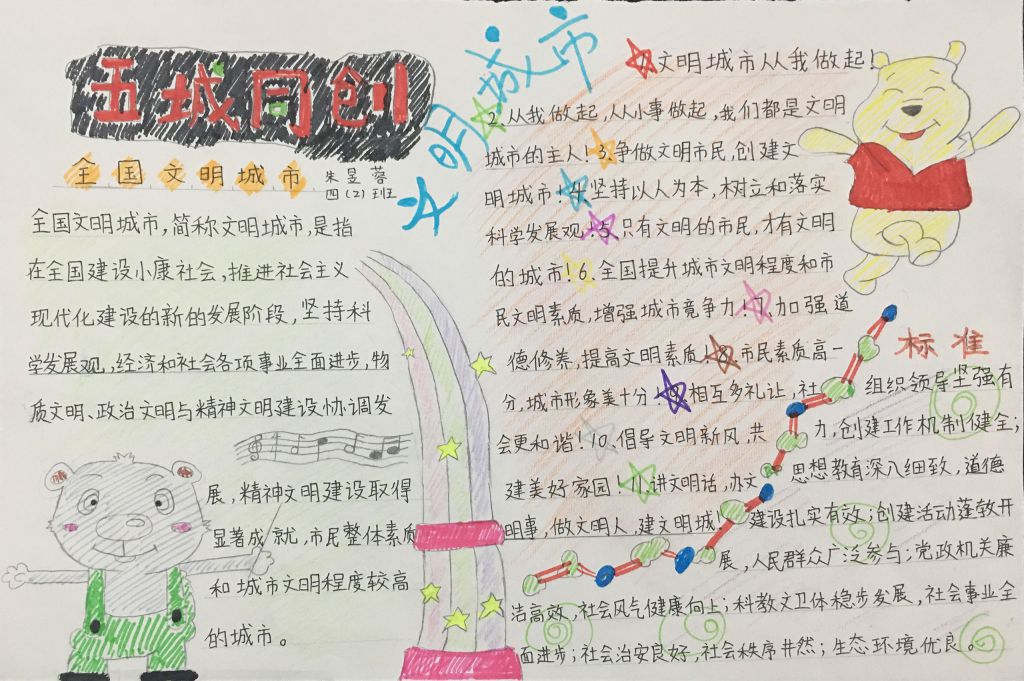 五城同创
全国文明城市
朱昱蓉
四(2)班
全国文明城市,简称文明城市,是指
在全国建设小康社会,推进社会主义
现代化建设的新的发展阶段,坚持科
学发展观,经济和社会各项事业全面进步,物
质文明、政治文明与精神文明建设协调发
展,精神文明建设取得
显著成就,市民整体素质
和城市文明程度较高
的城市。
文明城市
1.文明城市从我做起!
2.从我做起,从小事做起,我们都是文明
城市的主人!3.争做文明市民,创建文
明城市!4.坚持以人为本,树立和落实
科学发展观!5.只有文明的市民,才有文明
的城市!6.全国提升城市文明程度和市
民文明素质,增强城市竞争力!7.加强道
德修养,提高文明素质!8.市民素质高一
分,城市形象美十分!9.相互多礼让,社
会更和谐!10.倡导文明新风,共
建美好家园!11.讲文明话,办文
明事,做文明人,建文明城!
标准
组织领导坚强有
力,创建工作机制健全;
思想教育深入细致,道德
建设扎实有效;创建活动蓬教开
展,人民群众广泛参与;党政机关廉
洁高效,社会风气健康向上;科教文卫体稳步发展,社会事业全
面进步;社会治安良好,社会秩序井然;生态环境优良。